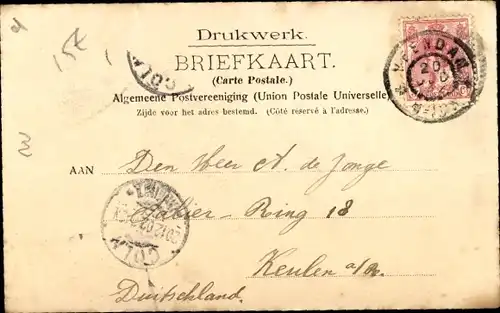 15€
Drukwerk.
BRIEFKAART.
(Carte Postale.)
Algemeene Postvereeniging (Union Postale Universelle)
Zijde voor het adres bestemd. (Côté réservé à l'adresse.)
VEENDAM
20
CÖLN
AAN Den Heer A. de Jonge
Salier-Ring 18
Keulen a/R.
Duitschland.
CÖLN